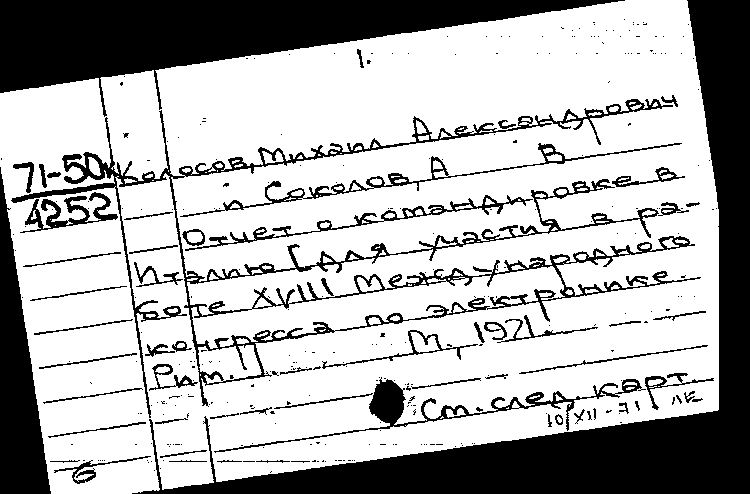 1.
71-50к
4252
Колосов, Михаил Александрович
и Соколов, А В
Отчет о командировке в
Италию [для участия в ра-
боте XVIII Международного
конгресса по электронике.
Рим.] М., 1971.
См. след. карт.
10/XII-71.
6